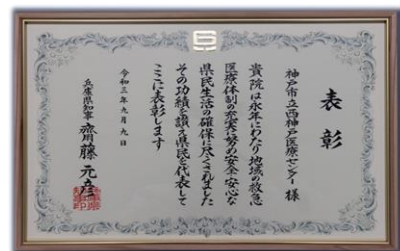 表彰
神戸市立西神戸医療センター 様
貴院は永年にわたり地域の救急
医療体制の充実に努め安全・安心な
県民生活の確保に尽くされました
その功績を讃え県民を代表して
ここに表彰します
令和三年九月九日
兵庫県知事 齋藤元彦